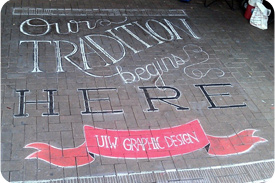 Our
TRADITION
begins
HERE
UIW GRAPHIC DESIGN